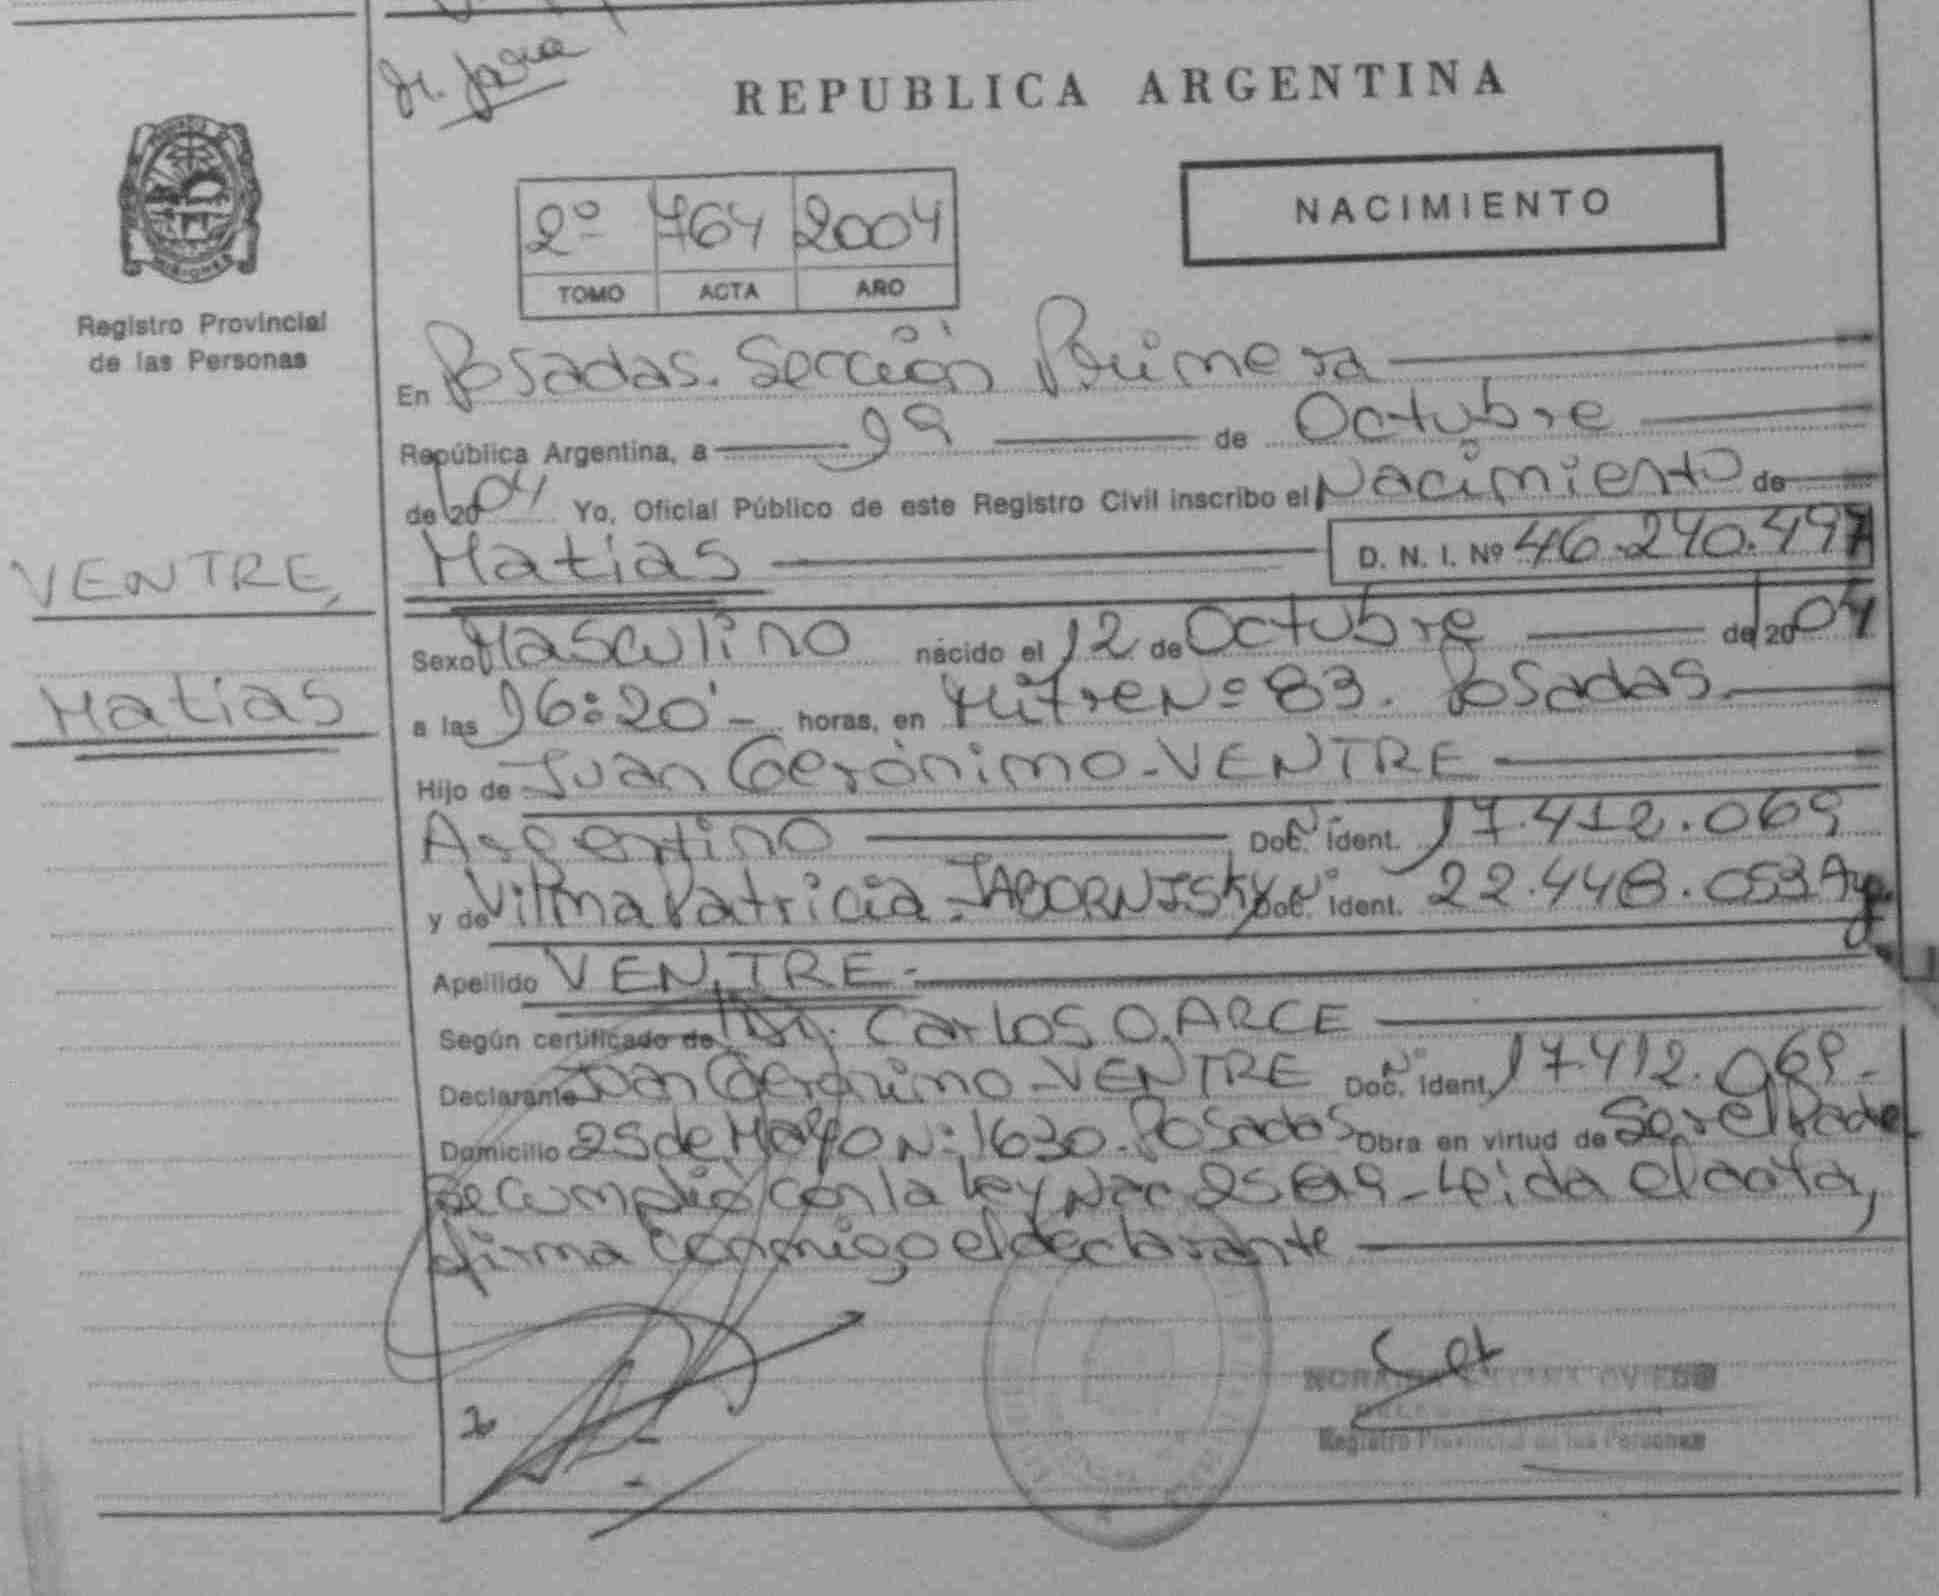 REPUBLICA ARGENTINA
NACIMIENTO
2º 764 2004
TOMO ACTA AÑO
PROVINCIA DE
MISIONES
Registro Provincial
de las Personas
VENTRE,
Matias
En Posadas. Sección Primera
República Argentina, a 19 de Octubre
de 2004 Yo, Oficial Público de este Registro Civil inscribo el Nacimiento de
Matias D. N. I. Nº 46.240.497
Sexo Masculino nacido el 12 de Octubre de 2004
a las 16:20' - horas, en Mitre Nº 83. Posadas.
Hijo de Juan Gerónimo - VENTRE
Argentino Doc. Ident. 17.412.069
y de Vilma Patricia - JABORNISky Doc. Ident. 22.448.053 Arg.
Apellido VENTRE -
Según certificado de Dr. Carlos O. ARCE
Declarante Juan Gerónimo - VENTRE Doc. Ident. 17.412.069 -
Domicilio 25 de Mayo Nº 1630 - Posadas Obra en virtud de Ser el Padre
Se cumplió con la Ley Nac - Leida el acta,
firma conmigo el declarante
OVIEDO
Registro Provincial de las Personas